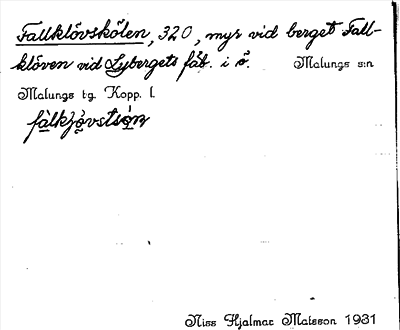 Fallklövskölen, 320, myr vid berget Fall-
klöven vid Lybergets fäb. i ö. Malungs s:n
Malungs tg. Kopp. l.
Niss Hjalmar Matsson 1931